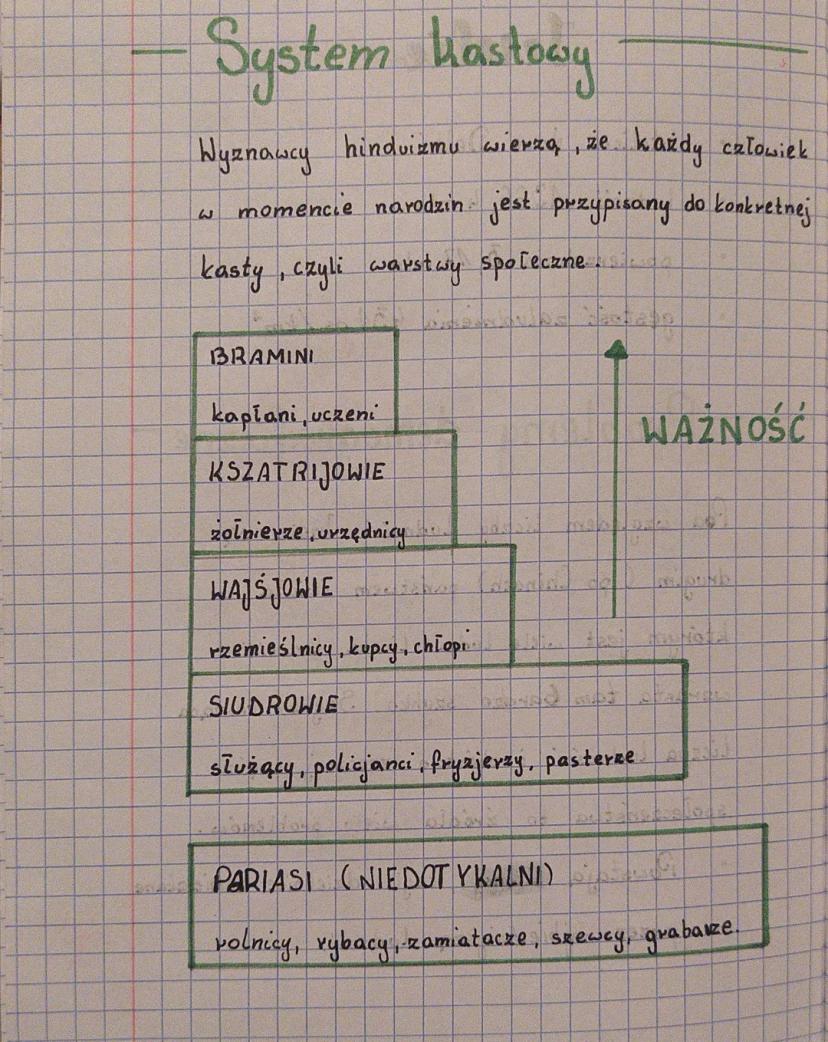 System kastowy
Wyznawcy hinduizmu wierzą, że każdy człowiek
w momencie narodzin jest przypisany do konkretnej
kasty, czyli warstwy społeczne.
BRAMINI
kapłani, uczeni
WAŻNOŚĆ
KSZATRIJOWIE
żołnierze, urzędnicy
WAJŚJOWIE
rzemieślnicy, kupcy, chłopi
SIUDROWIE
służący, policjanci, fryzjerzy, pasterze
PARIASI (NIEDOTYKALNI)
rolnicy, rybacy, zamiatacze, szewcy, grabarze.